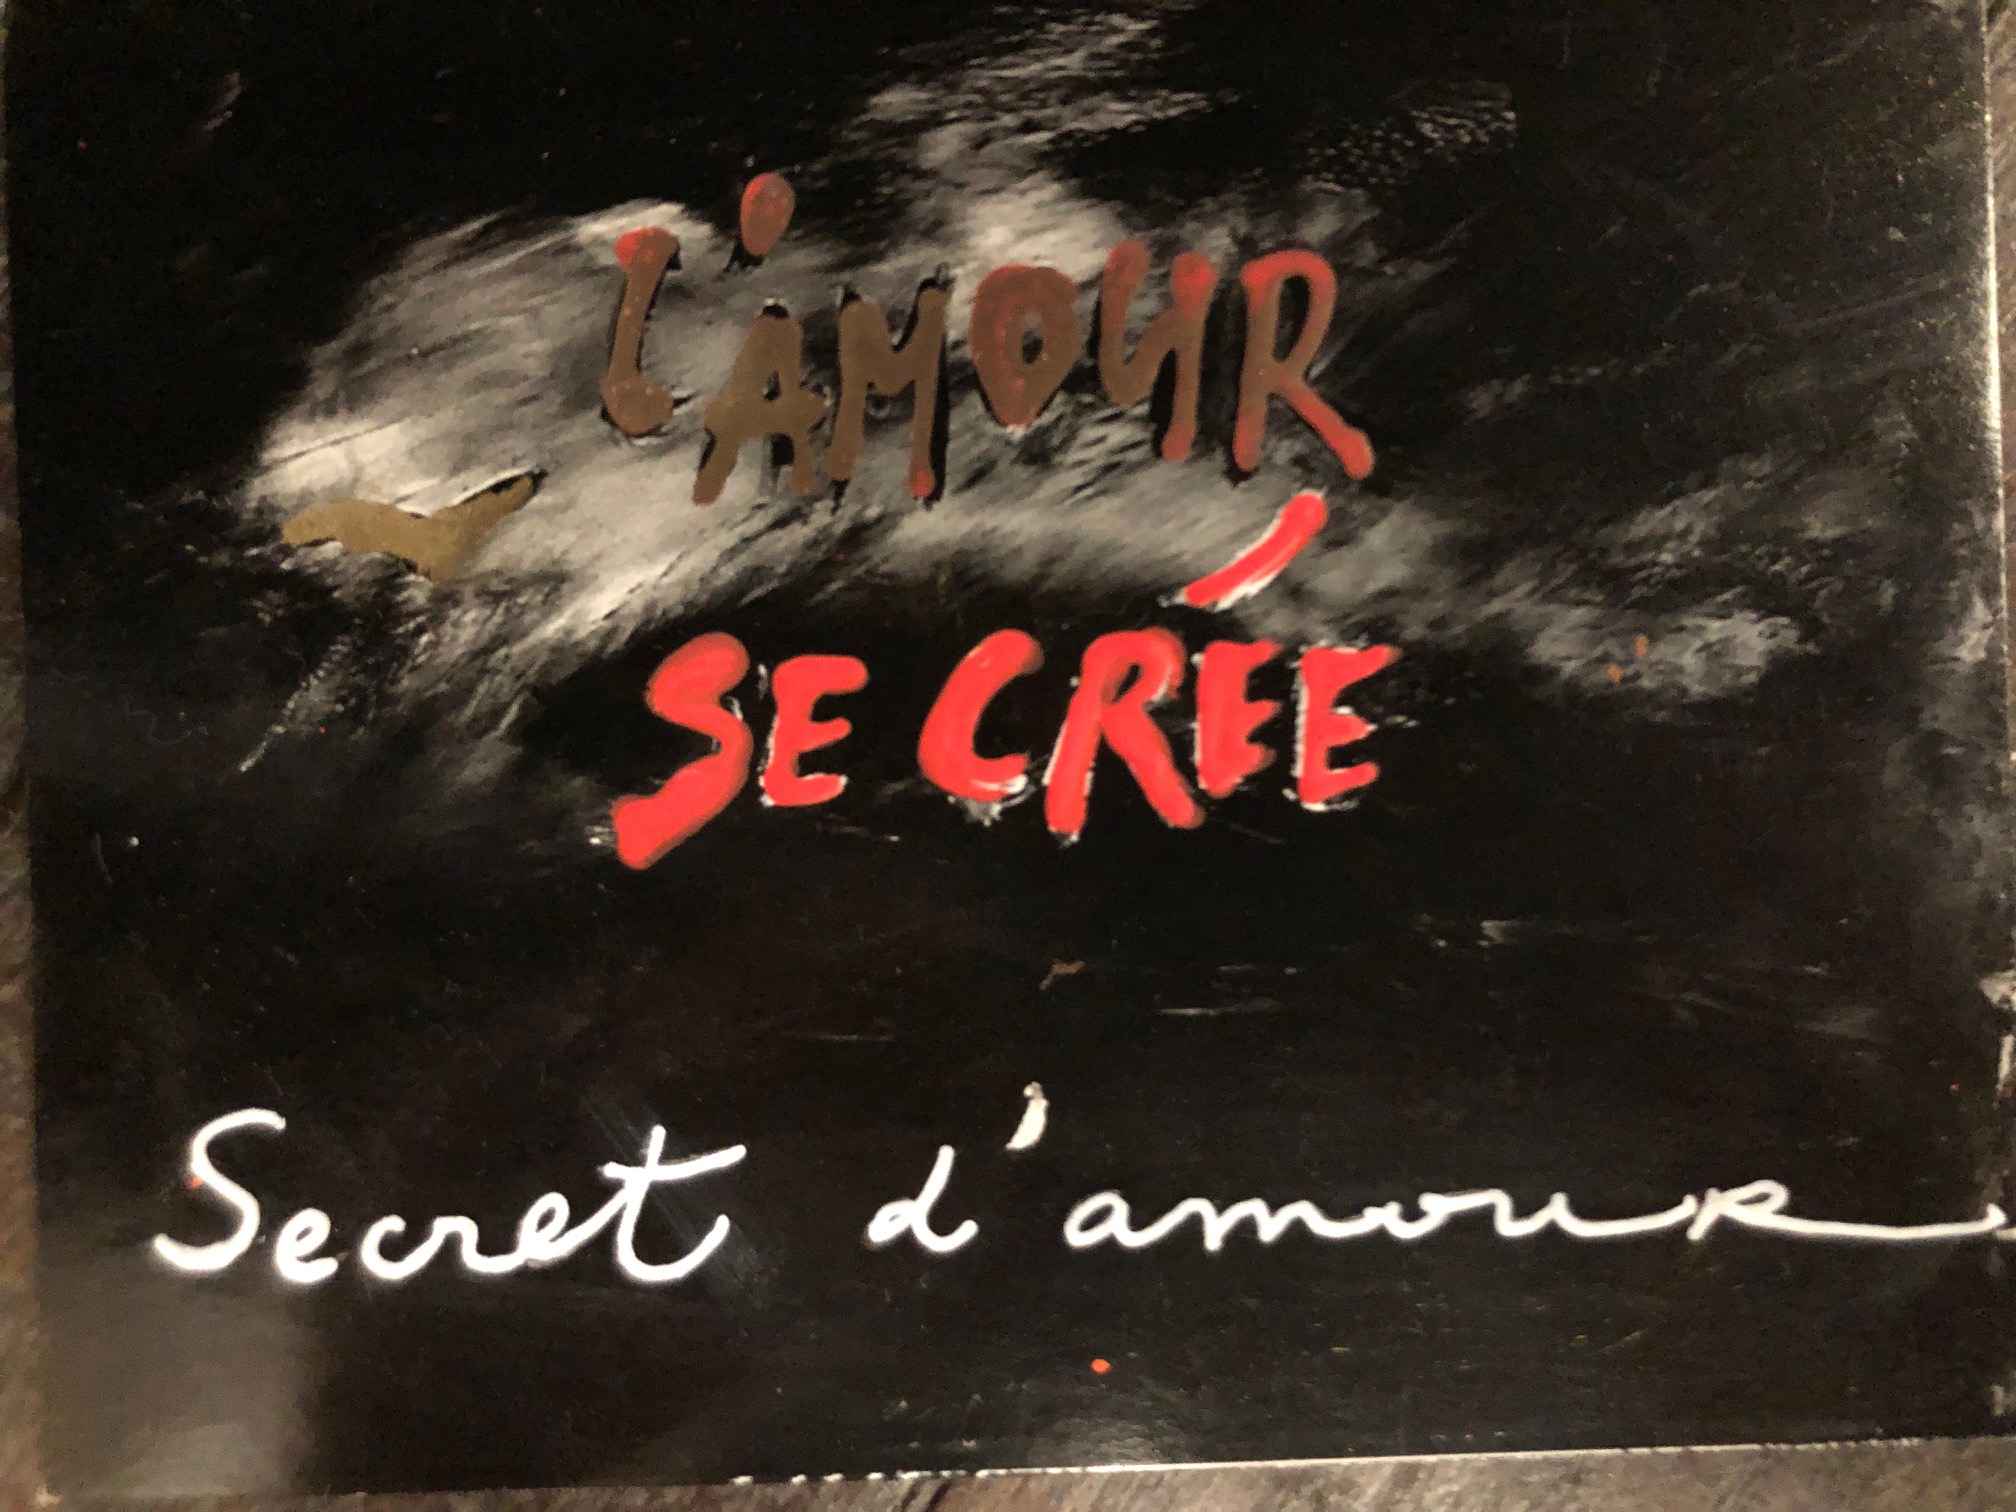 L'AMOUR
SE CRÉE
Secret d'amour